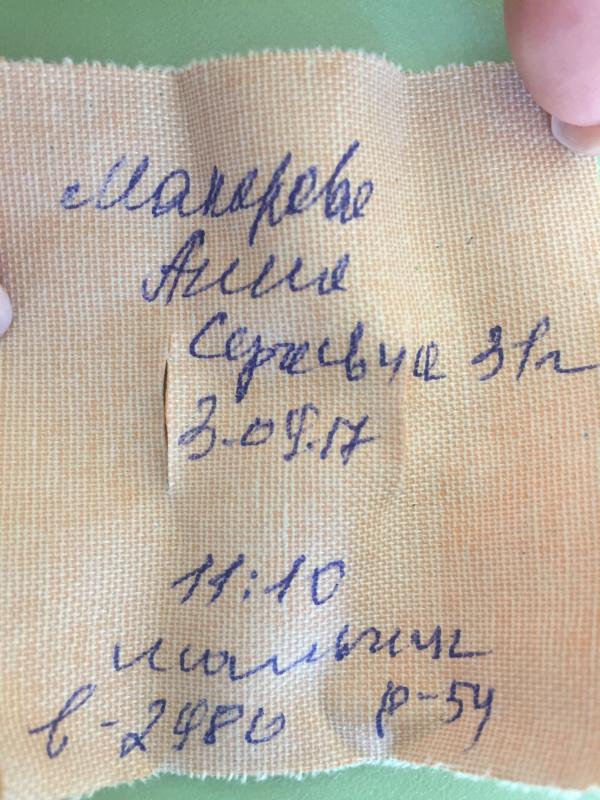 Макарова
Анна
Сергеевна 31г
3.09.17
11:10
мальчик
в-2980 р-54